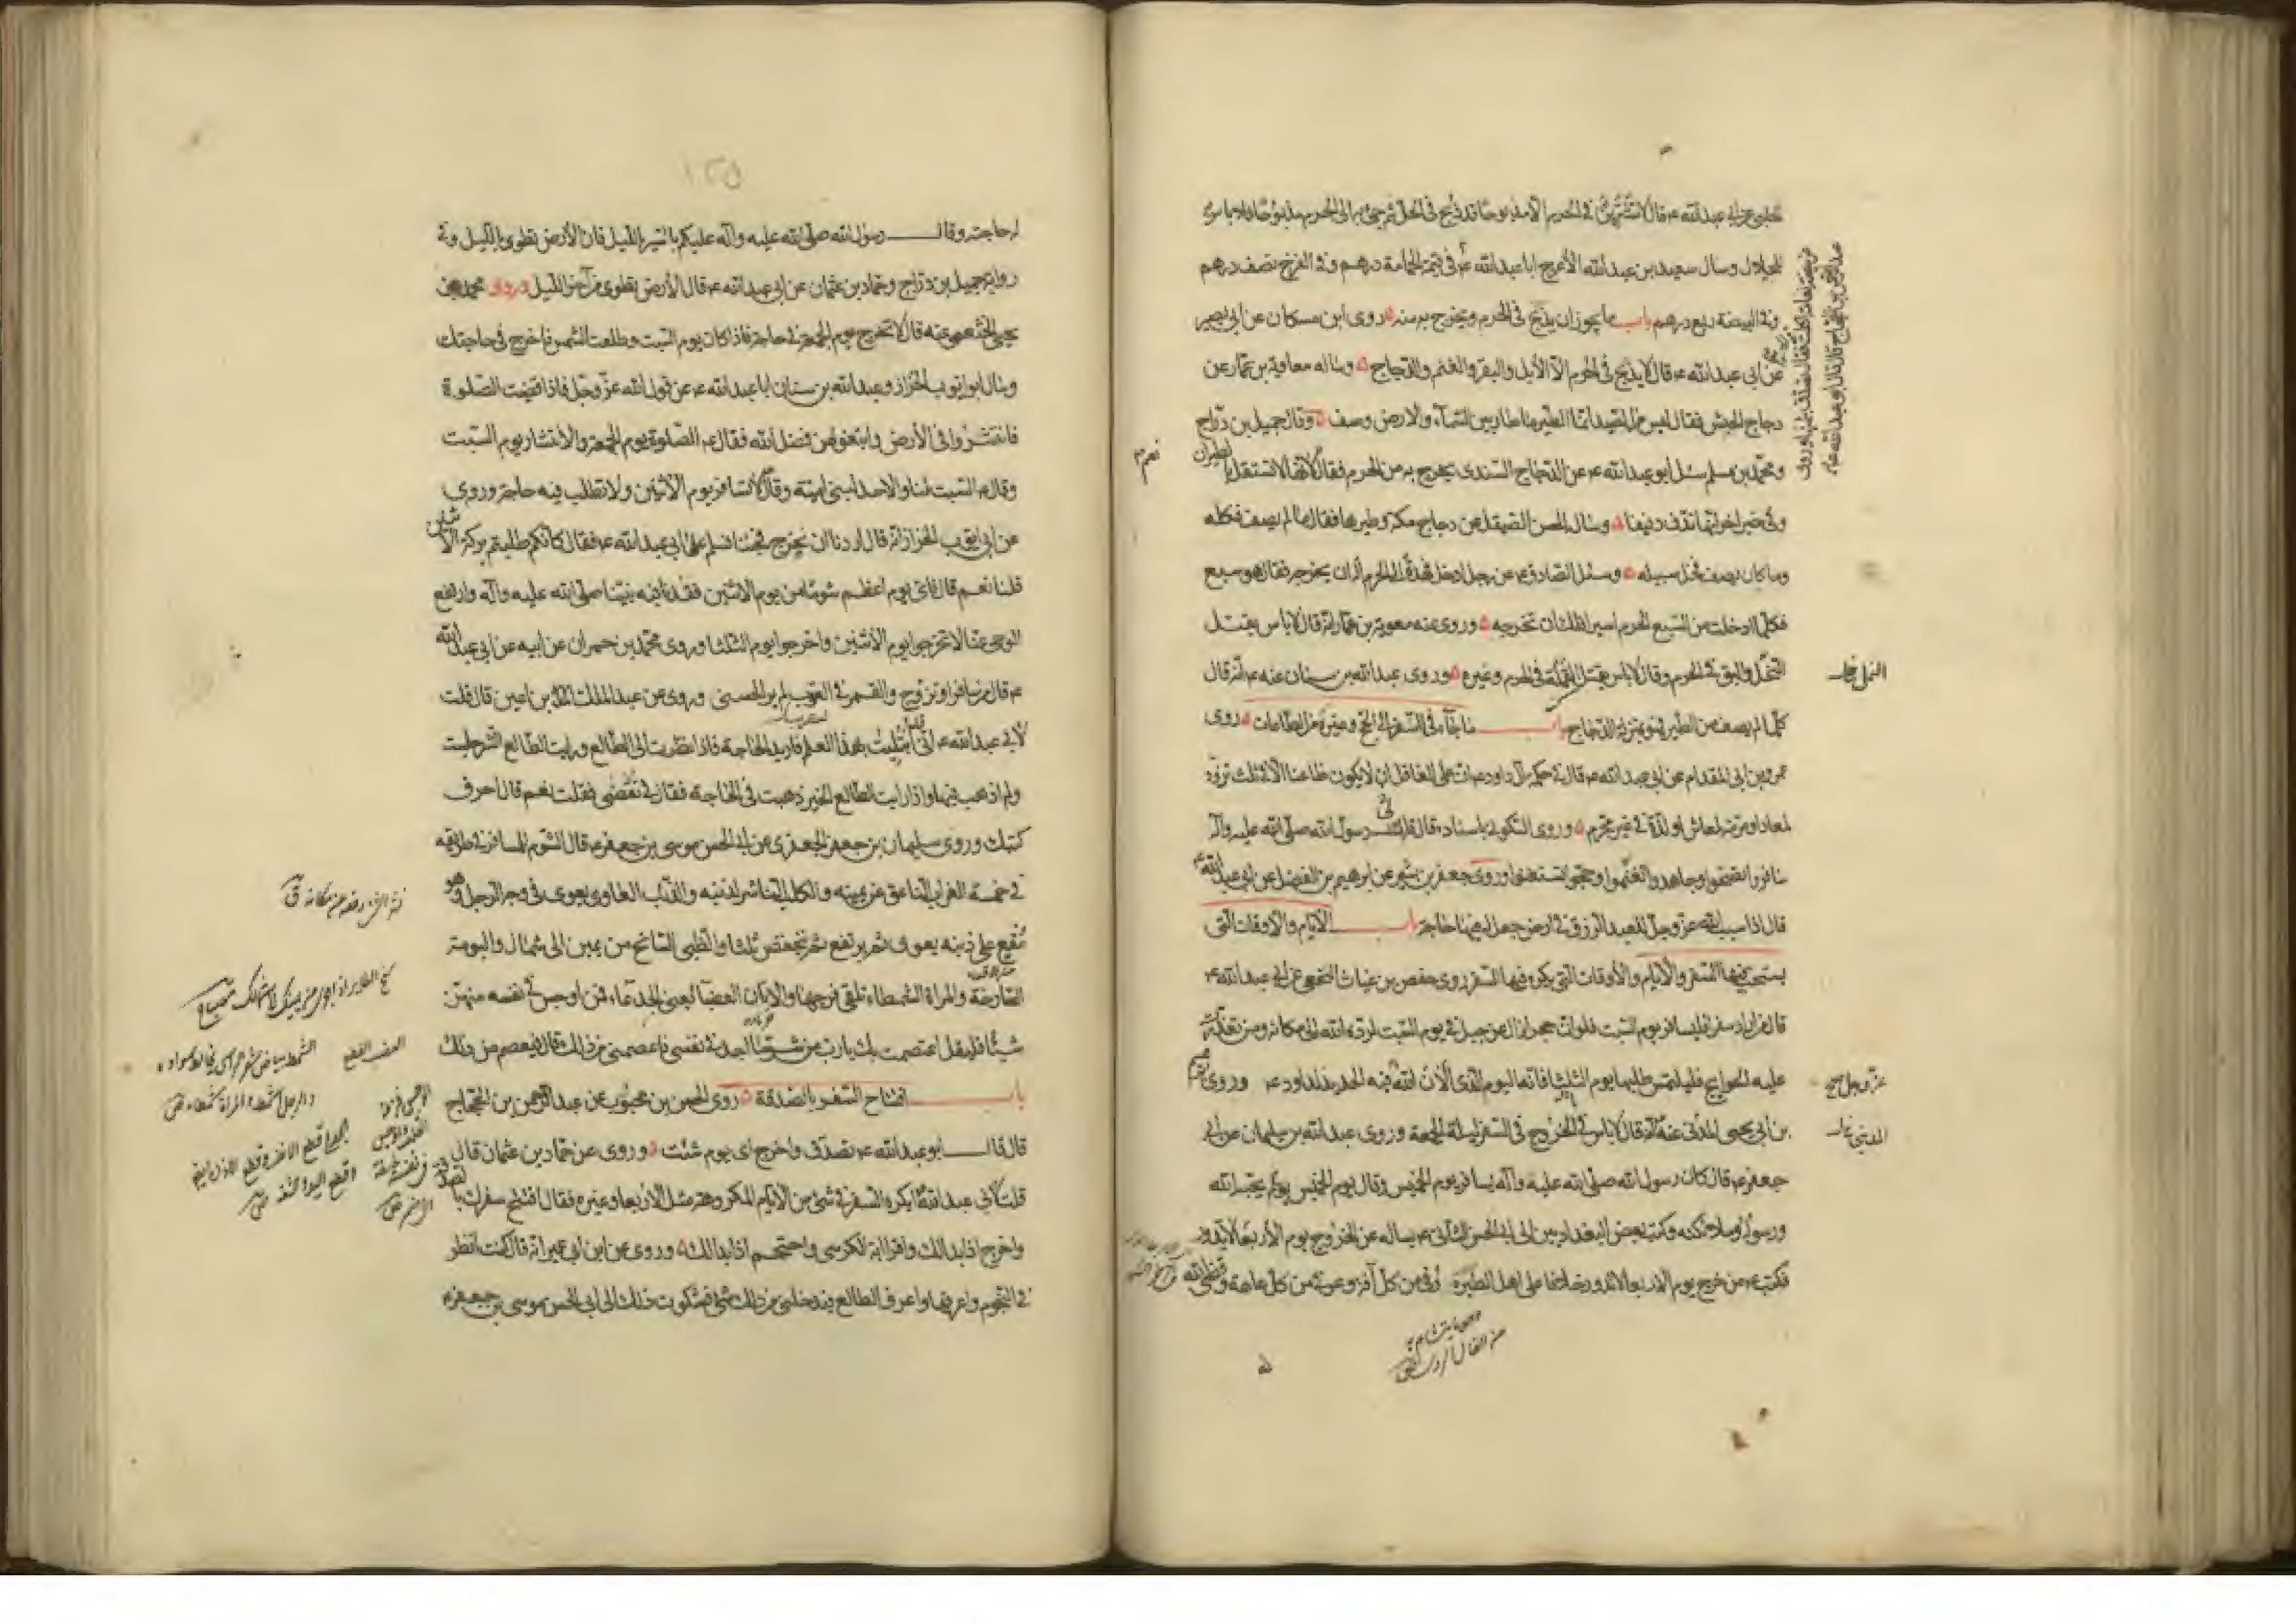 الحلبي عن ابي عبد الله ع قال لا تشترين في الحرم الا مذبوحا قد ذبح في الحل ثم جيء به الى الحرم مذبوحا فلا باس به
للحلال وسال سعيد بن عبد الله الأعرج ابا عبد الله ع في قيمة الحمامة درهم وفي الفرخ نصف درهم
وفي البيضة ربع درهم باب ما يجوز ان يذبح في الحرم ويخرج به منه روى ابن مسكان عن ابي بصير
عن ابي عبد الله ع قال لا يذبح في الحرم الا الأبل والبقر والغنم والدجاج وساله معاوية بن عمار عن
دجاج الحبش فقال ليس من الصيد انما الطير ما طار بين السماء والارض وصف وقال جميل بن دراج
ومحمد بن مسلم سئل ابو عبد الله ع عن الدجاج السندى يخرج به من الحرم فقال نعم لانها لا تستقل بالطيران
وفي خبر اخر انها تدف دفيفا وسال الحسن الصيقل عن دجاج مكة وطيرها فقال ما لم يصف فكله
وما كان يصف فخل سبيله وسئل الصادق ع عن رجل ادخل فهدا الى الحرم اله ان يخرجه فقال هو سبع
فكلما ادخلت من السبع الحرم اسيرا فلك ان تخرجه وروى عنه معوية بن عمار انه قال لا باس بقتل
النمل والبق في الحرم وقال لا باس بقتل القملة في الحرم وغيره وروى عبد الله بن سنان عنه ع انه قال
كلما لم يصف من الطير فهو بمنزلة الدجاج باب ما جاء في السفر الى الحج وغيره من الطاعات روى
عمرو بن ابي المقدام عن ابي عبد الله ع قال في حكمة آل داود ع ان على العاقل ان لا يكون ظاعنا الا في ثلث تزود
لمعاد او مرمة لمعاش او لذة في غير محرم وروى السكوني باسناده قال قال رسول الله صلى الله عليه وآله
سافروا تصحوا وجاهدوا تغنموا وحجوا تستغنوا وروى جعفر بن بشير عن ابرهيم بن الفضل عن ابي عبد الله ع
قال اذا سبب الله عز وجل للعبد الرزق في ارض جعل له فيها حاجة باب الايام والاوقات التي
يستحب فيها السفر والأيام والأوقات التي يكره فيها السفر روى حفص بن غياث النخعي عن ابي عبد الله ع
قال من اراد سفرا فليسافر يوم السبت فلو ان حجرا زال عن جبل في يوم السبت لرده الله الى مكانه ومن تعذرت
عليه الحوايج فليلتمس طلبها يوم الثلثا فانه اليوم الذى الان الله فيه الحديد لداود ع وروى ابراهيم
بن ابي يحيى المدني عنه انه قال لا باس بالخروج في السفر ليلة الجمعة وروى عبد الله بن سليمان عن ابي
جعفر ع قال كان رسول الله صلى الله عليه وآله يسافر يوم الخميس وقال يوم الخميس يوم يحبه الله
ورسوله وملائكته وكتب بعض البغداديين الى ابي الحسن الثاني ع يساله عن الخروج يوم الأربعا لا يدور
فكتب ع من خرج يوم الاربعا لا يدور خلافا على اهل الطيرة وقي من كل آفة وعوفي من كل عاهة وقضى الله
النمل
عز وجل
المدني
له حاجته وقال رسول الله صلى الله عليه وآله عليكم بالسير بالليل فان الأرض تطوى بالليل وفي
رواية جميل بن دراج وحماد بن عثمان عن ابي عبد الله ع قال الأرض تطوى من آخر الليل وروى محمد بن
يحيى الخثعمي عنه قال لا تخرج يوم الجمعة في حاجة فاذا كان يوم السبت وطلعت الشمس فاخرج في حاجتك
وسال ابو ايوب الخزاز وعبد الله بن سنان ابا عبد الله ع عن قول الله عز وجل فاذا قضيت الصلوة
فانتشروا في الأرض وابتغوا من فضل الله فقال ع الصلوة يوم الجمعة والأنتشار يوم السبت
وقال ع السبت لنا والاحد لبني امية وقال لا تسافر يوم الأثنين ولا تطلب فيه حاجة وروى
عن ابي ايوب الخزاز انه قال اردنا ان نخرج فجئنا نسلم على ابي عبد الله ع فقال كانكم طلبتم بركة الاثنين
قلنا نعم قال فاي يوم اعظم شوما من يوم الاثنين فقدنا فيه نبينا صلى الله عليه وآله وارتفع
الوحي عنا لا تخرجوا يوم الأثنين واخرجوا يوم الثلثا وروى محمد بن حمران عن ابيه عن ابي عبد الله
ع قال من سافر او تزوج والقمر في العقرب لم ير الحسنى وروى عن عبد الملك بن اعين قال قلت
لأبي عبد الله ع اني قد ابتليت بهذا العلم فاريد الحاجة فاذا نظرت الى الطالع ورايت الطالع الشر جلست
ولم اذهب فيها واذا رايت الطالع الخير ذهبت في الحاجة فقال لي تقضى فقلت نعم قال احرق
كتبك وروى سليمان بن جعفر الجعفري عن ابي الحسن موسى بن جعفر ع قال الشوم للمسافر في طريقه
في خمسة الغراب الناعق عن يمينه والكلب الناشر لذنبه والذئب العاوى يعوى في وجه الرجل وهو
مقع على ذنبه يعوى ثم يرتفع ثم ينخفض ثلثا والظبي السانح من يمين الى شمال والبومة
الصارخة والمراة الشمطاء تلقي فرجها والاتان العضبا يعني الجدعاء فمن اوجس في نفسه منهن
شيئا فليقل اعتصمت بك يا رب من شر ما اجد في نفسي فاعصمني من ذلك قال فيعصم من ذلك
باب افتتاح السفر بالصدقة روى الحسن بن محبوب عن عبد الرحمن بن الحجاج
قال قال ابو عبد الله ع تصدق واخرج اى يوم شئت وروى عن حماد بن عثمان قال
قلت لأبي عبد الله ع ايكره السفر في شيء من الايام المكروهة مثل الاربعا وغيره فقال افتتح سفرك بالصدقة
واخرج اذا بدا لك واقرا اية الكرسي واحتجم اذا بدا لك وروى عن ابن ابي عمير انه قال كنت انظر
في النجوم واعرفها واعرف الطالع فيدخلني من ذلك شيء فشكوت ذلك الى ابي الحسن موسى بن جعفر ع